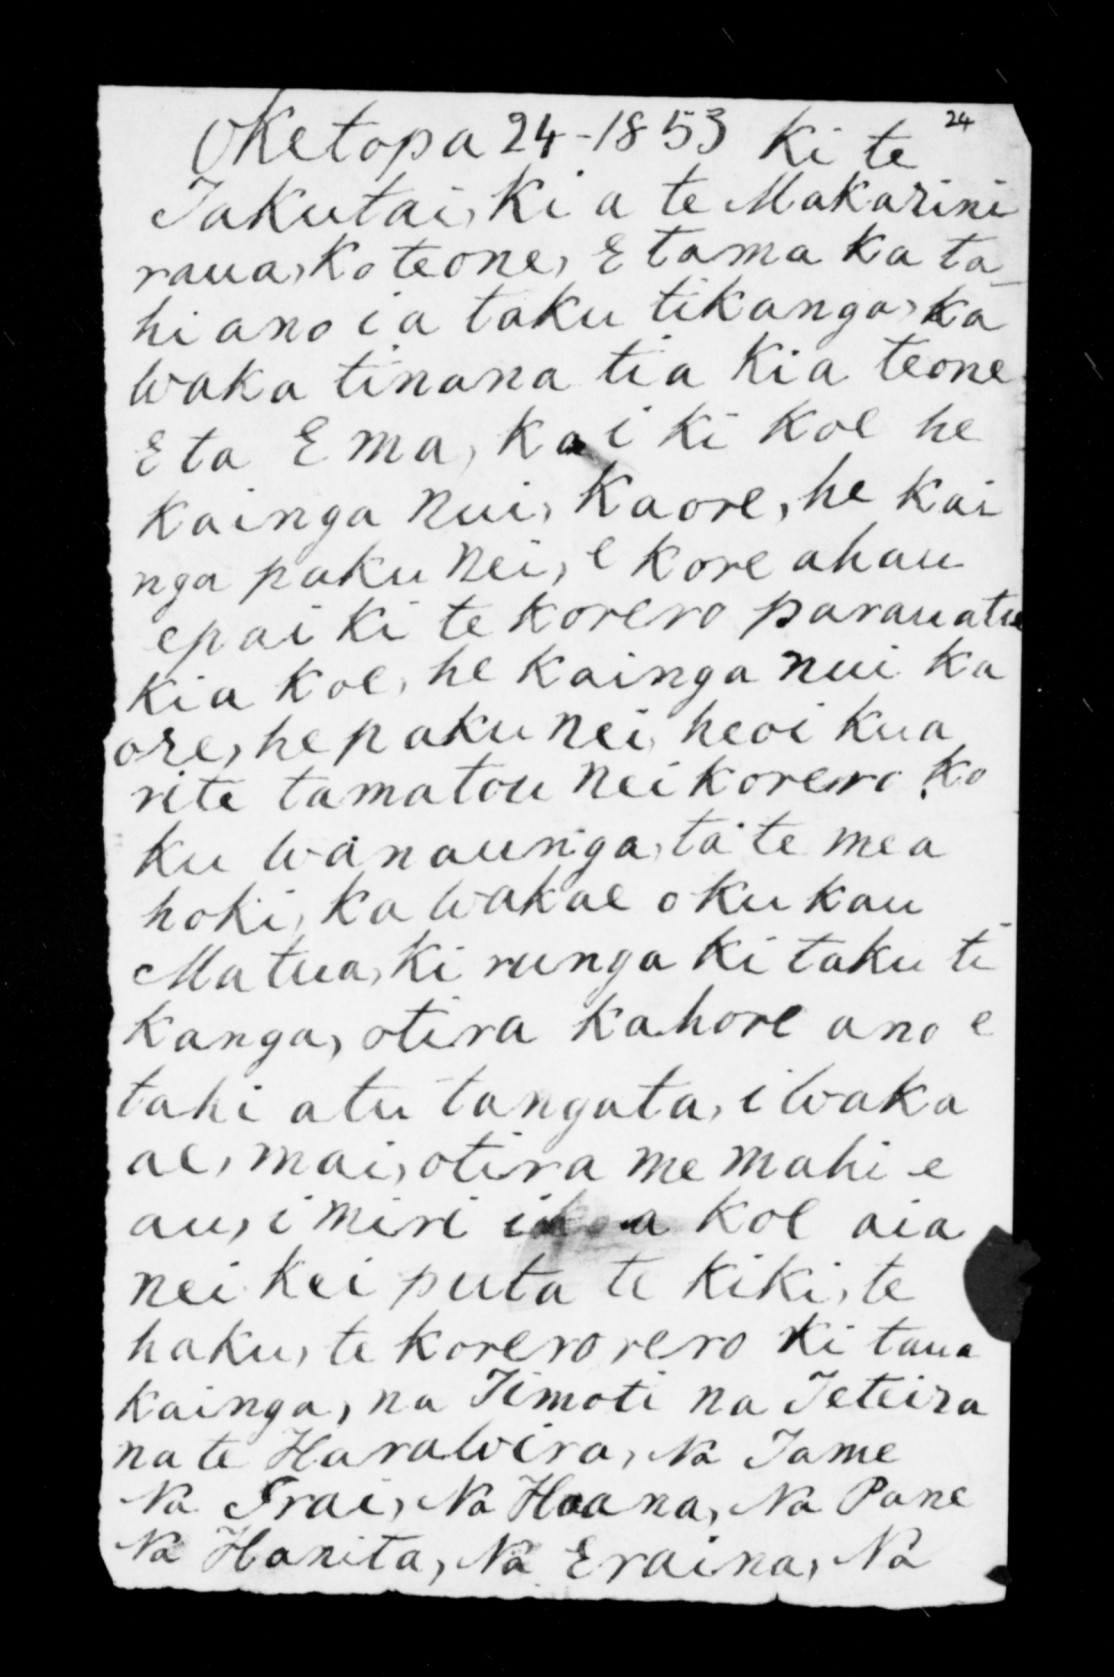 24
Oketopa 24-1853 Ki te
Takutai, Ki a te Makarini
raua, Ko teone, E tama ka ta_
hi ano ia taku tikanga, ka
waka tinana tia kia teone
E ta E ma, ka i ki koe he
kainga nui, kaore, he kai
nga paku nei, e kore ahau
epai ki te korero parau atu
kia koe, he kainga nui ka
ore, he paku nei, heoi kua
rite tamatou nei korero ko
ku wanaunga, ta te mea
hoki, ka wakae oku kau
Matua, ki runga ki taku ti
kanga, otira kahore ano e
tahi atu tangata, i waka
ae, mai, otira me mahi e
au, i miri koe aia
nei kei puta te kiki, te
haku, te korerorero ki taua
kainga, na Timoti na Teteira
na te Harawira, Na Tame
Na Irai, Na Hoana, Na Pane
Na Hanita, Na Eraina, Na